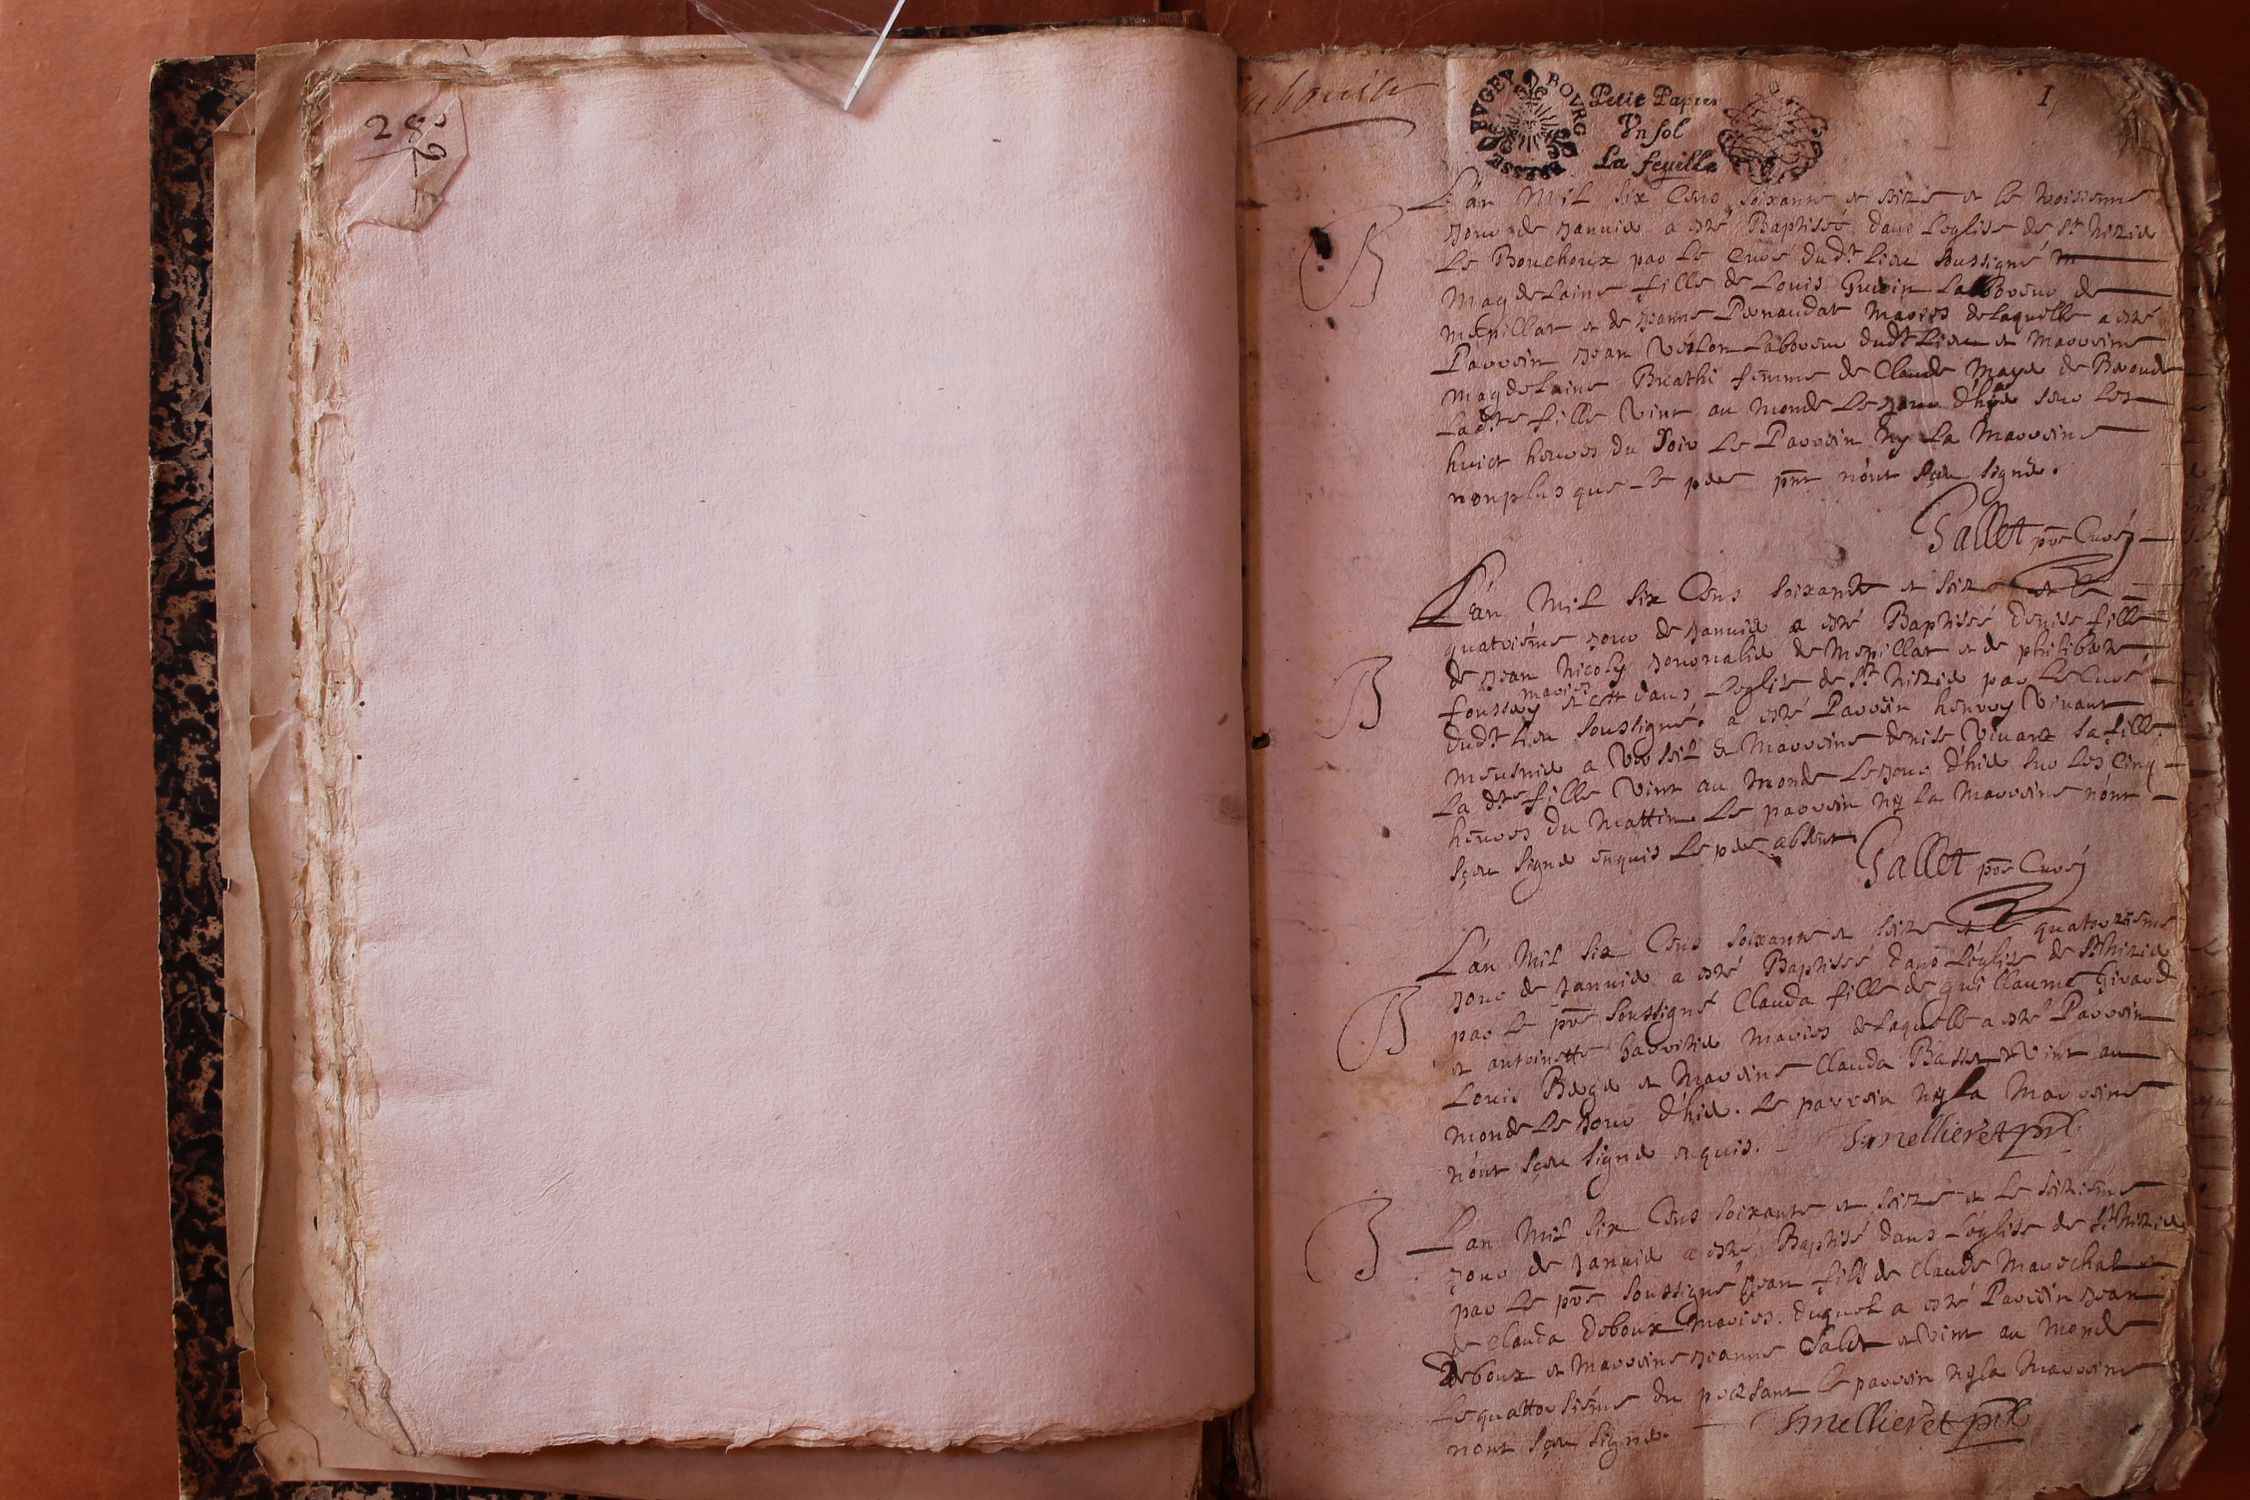 28
BRESSE BUGEY BOURG
Petit Papier
Un sol
La feuille
1
L'an Mil six Cens soixante et seize et le troisieme
Jour de Janvier a esté Baptisée dans l'eglise de St Nizier
Le Bouchoux par Le Curé dudt Lieu soussigné
Magdelaine fille de Louis Guerin Laboureur de
Mepillat et de Jeanne Perraudat Mariés de laquelle a esté
Parrain Jean Laboureur dudt Lieu et Marraine
Magdelaine femme de Claude de
Ladte fille Vint au Monde Le Jour d'hier sur Les
huict heures du Soir Le Parrain Ny La Marraine
non plus que Le pere pnt n'ont sçeu signer.
Gallet pre Curé
L'an Mil six Cens soixante et seize et le
quatriéme Jour de Janvier a esté Baptisée Denise fille
de Jean Nicoly Journalier de Mepillat et de philiberte
mariés
dans L'eglise de St Nizier par Le Curé
dudt Lieu soussigné. a esté Parrain henry Vivant
Meusnier a et Marraine denise Vivant sa fille.
La dte fille Vint au Monde Le Jour d'hier sur Les Cinq
heures du Mattin. Le parrain Ny La Marraine n'ont
sçeu signer enquis Le pere absent.
Gallet pre Curé
L'an Mil six Cens soixante et seize et le quatorziéme
Jour de Janvier a esté Baptisée dans L'église de St Nizier
par Le pre soussigné Clauda fille de guillaume Girard
et antoinette Mariés de laquelle a esté Parrain
Louis et Marraine Clauda Basset et Vint au
Monde Le Jour d'hier. Le parrain Ny La Marraine
n'ont sçeu signer enquis.
L'an Mil six Cens soixante et seize et le seiziéme
Jour de Janvier a esté Baptisé dans L'église de St Nizier
par Le pre soussigné Jean fils de Claude Marechal et
de Clauda Deboux Mariés. duquel a esté Parrain Jean
Deboux et Marraine Jeanne et Vint au Monde
Le quattorsiéme du present Le parrain Ny La Marraine
n'ont sçeu signer.